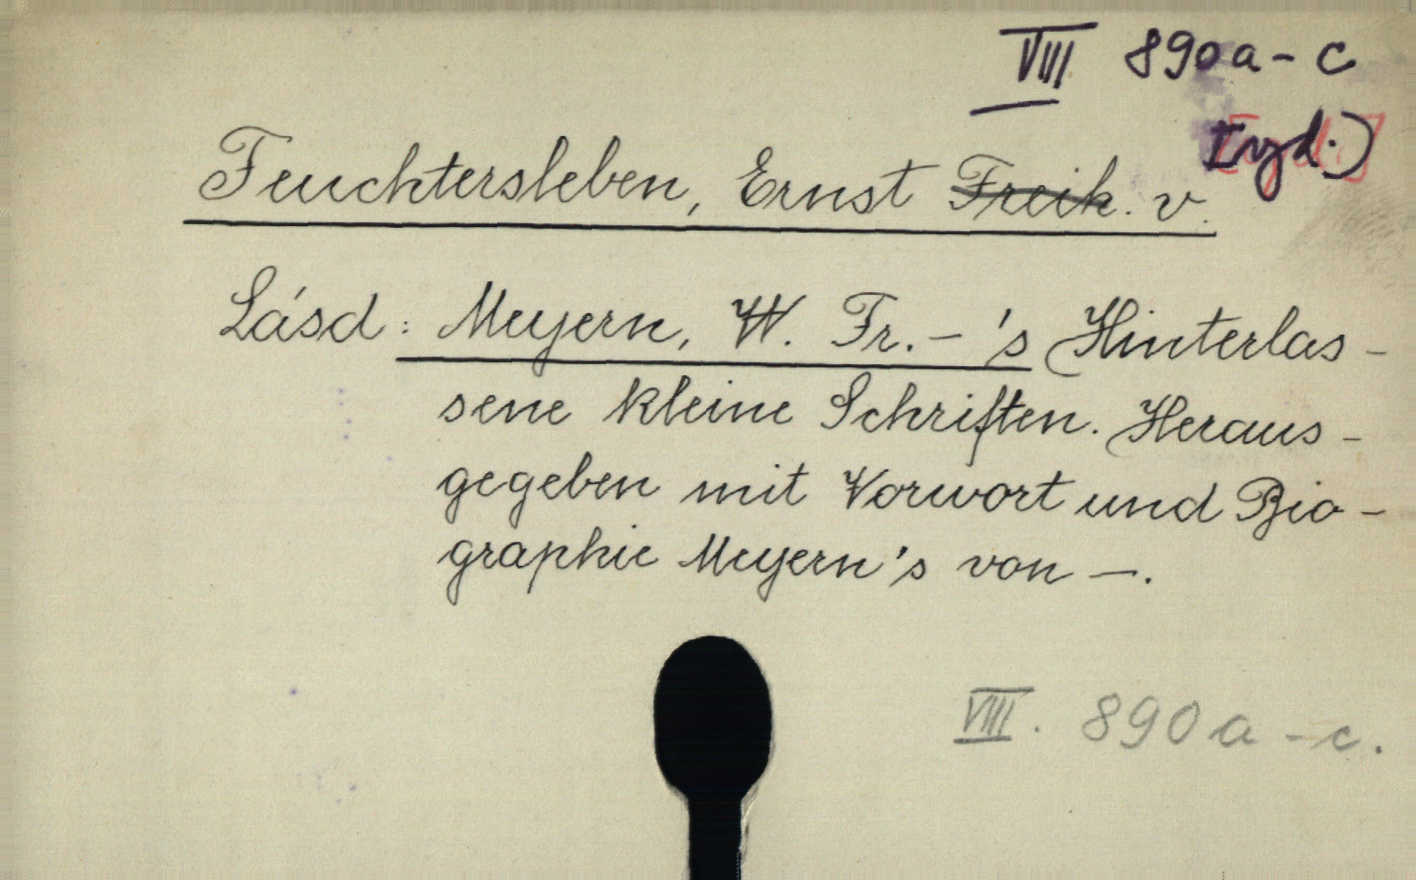 VIII 890a - c
Feuchtersleben, Ernst Freih. v.
Lásd: Meyern, W. Fr. - 's Hinterlas-
sene kleine Schriften. Heraus-
gegeben mit Vorwort und Bio-
graphie Meyern's von -.
VIII. 890a - c.